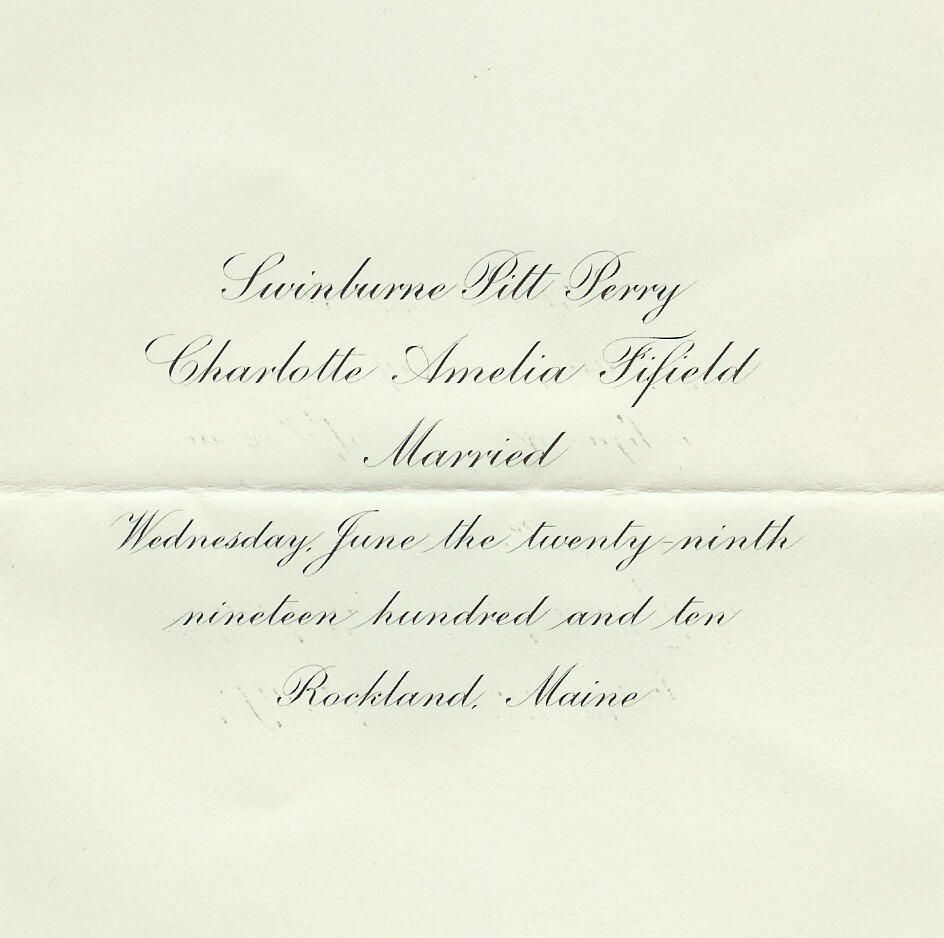 Swinburne Pitt Perry
Charlotte Amelia Fifield
Married
Wednesday, June the twenty-ninth
nineteen hundred and ten
Rockland, Maine